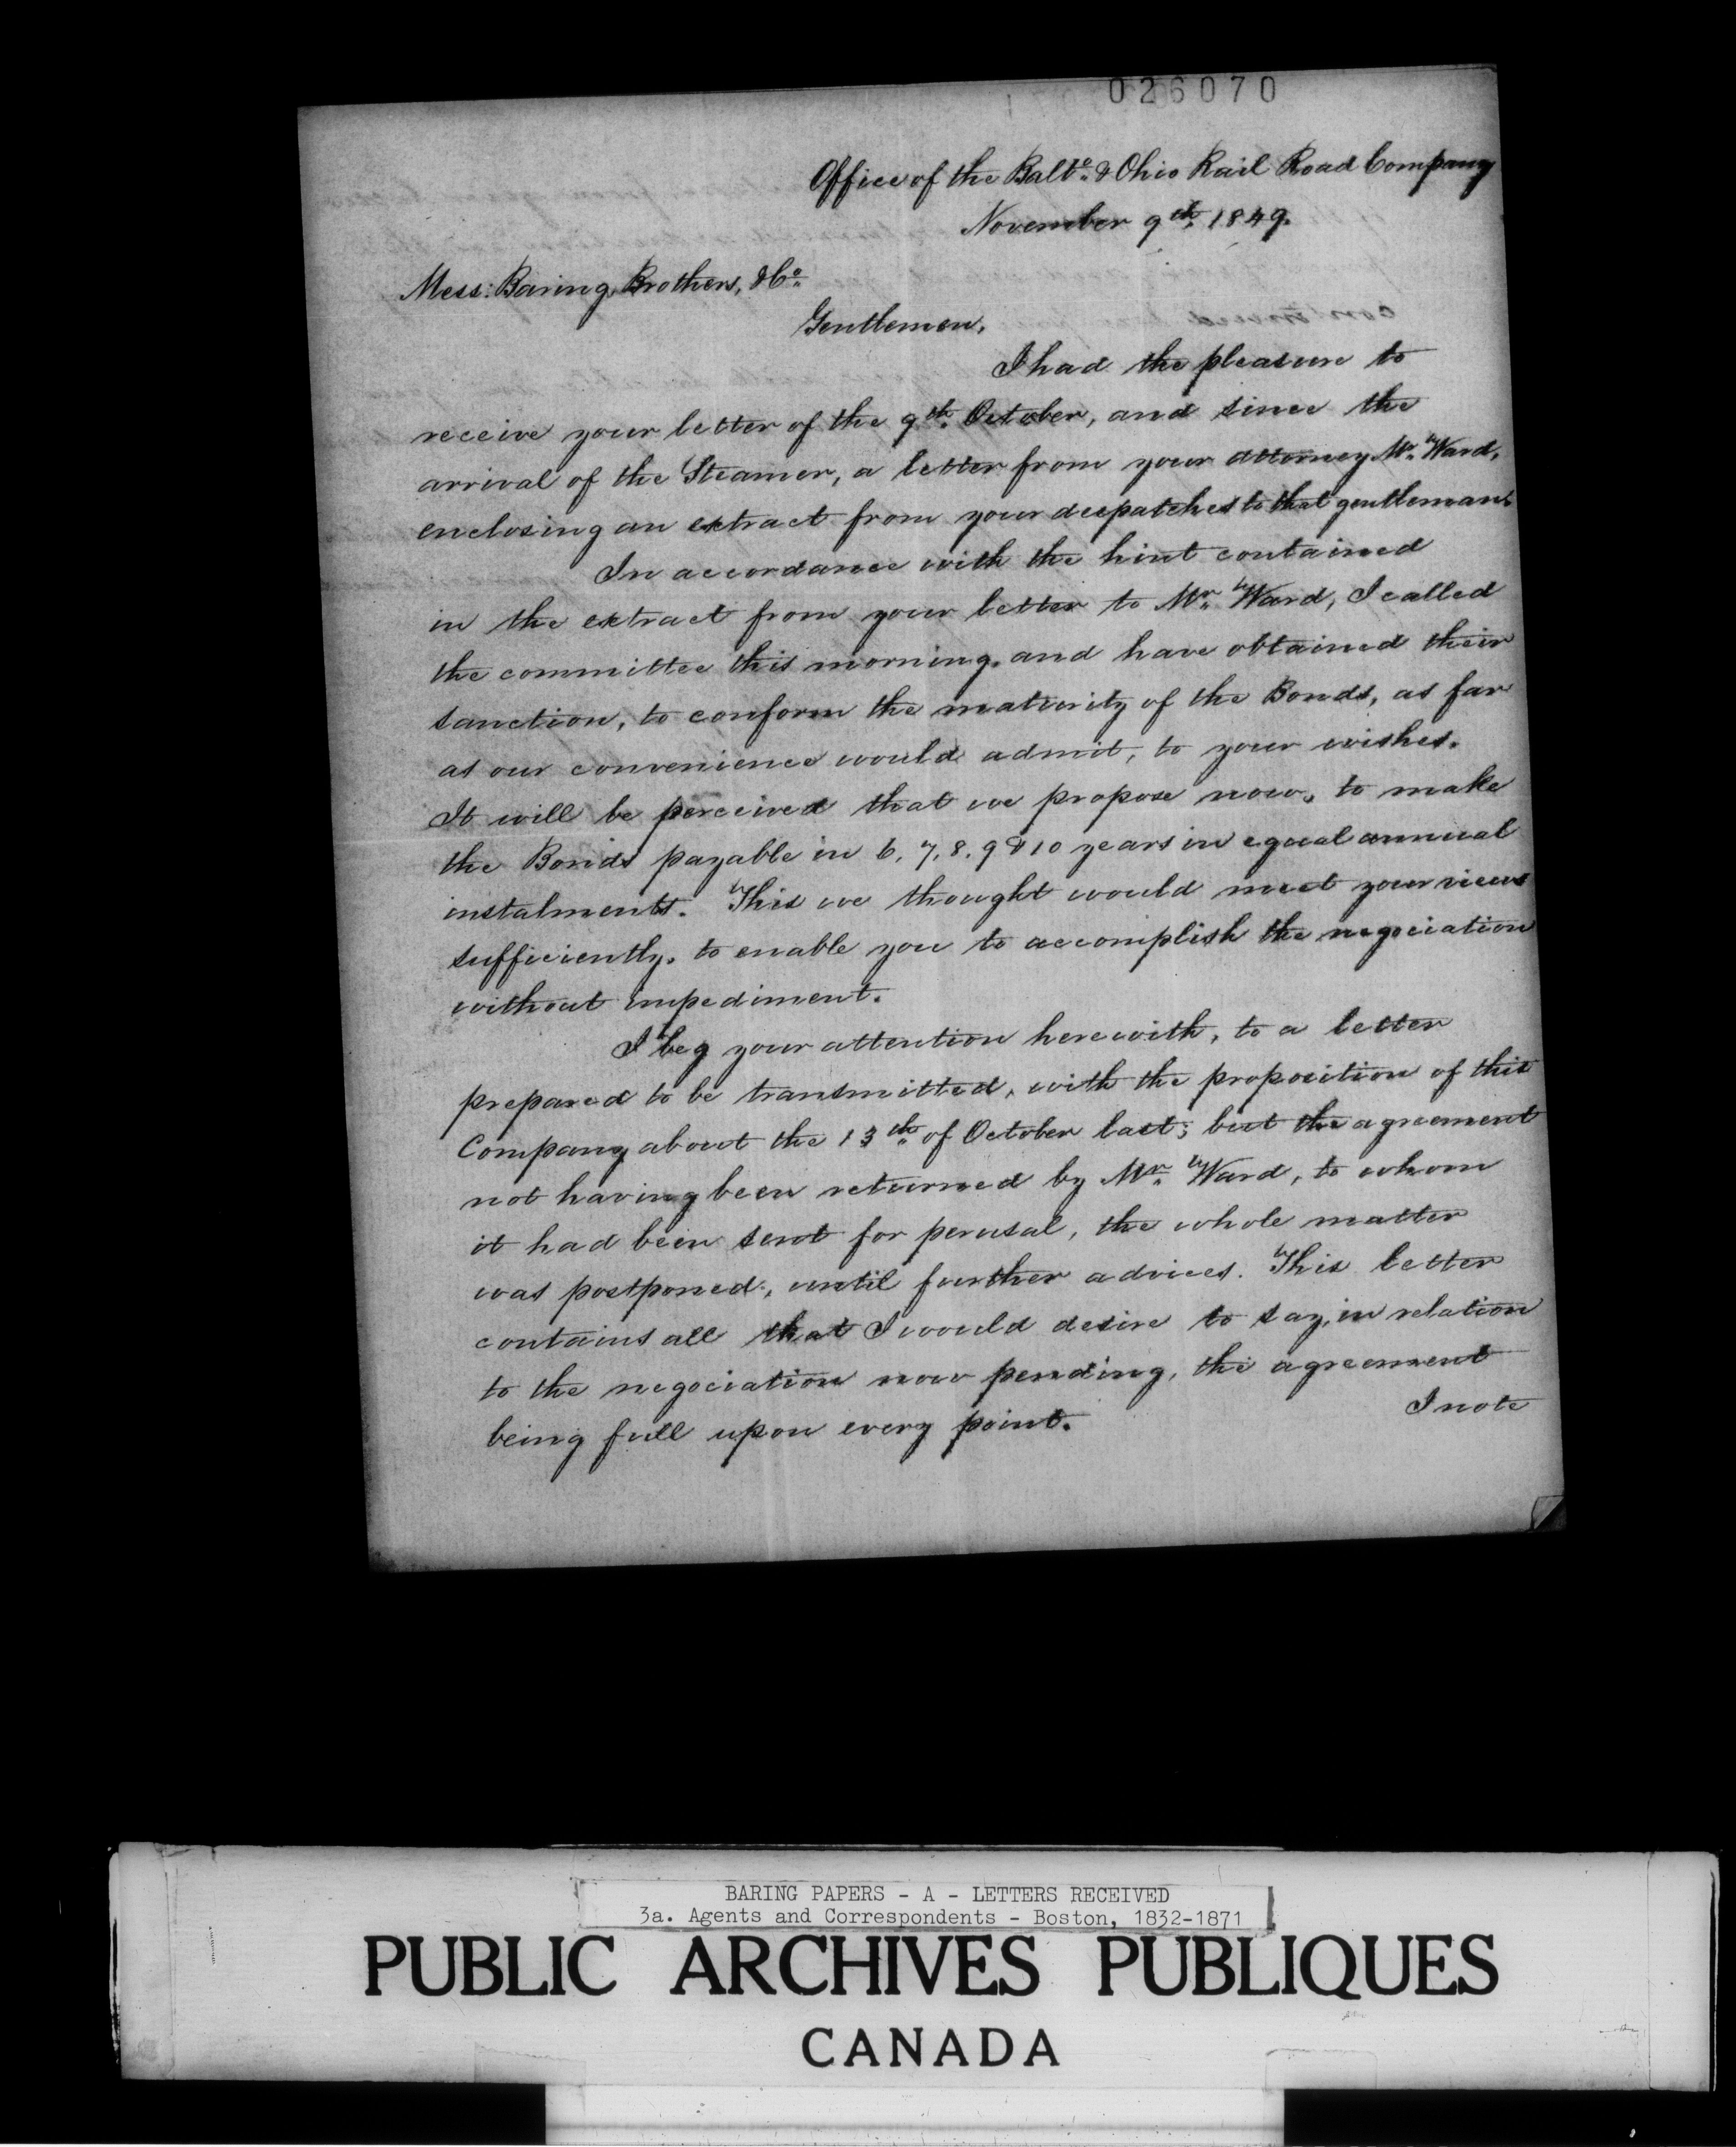 026070
Office of the Balto. & Ohio Rail Road Company
November 9th. 1849.
Mess: Baring, Brothers, & Co.
Gentlemen,
I had the pleasure to
receive your letter of the 9th. October, and since the
arrival of the Steamer, a letter from your attorney Mr. Ward,
enclosing an extract from your despatches to that gentleman.
In accordance with the hint contained
in the extract from your letter to Mr. Ward, I called
the committee this morning, and have obtained their
sanction, to conform the maturity of the Bonds, as far
as our convenience would admit, to your wishes.
It will be perceived that we propose now, to make
the Bonds payable in 6, 7, 8, 9 & 10 years in equal annual
instalments. This we thought would meet your views
sufficiently, to enable you to accomplish the negociation
without impediment.
I beg your attention herewith, to a letter
prepared to be transmitted, with the proposition of this
Company about the 13th. of October last; but the agreement
not having been returned by Mr. Ward, to whom
it had been sent for perusal, the whole matter
was postponed, until further advices. This letter
contains all that I would desire to say, in relation
to the negociation now pending, the agreement
being full upon every point.
I note
BARING PAPERS - A - LETTERS RECEIVED
3a. Agents and Correspondents - Boston, 1832-1871
PUBLIC ARCHIVES PUBLIQUES
CANADA